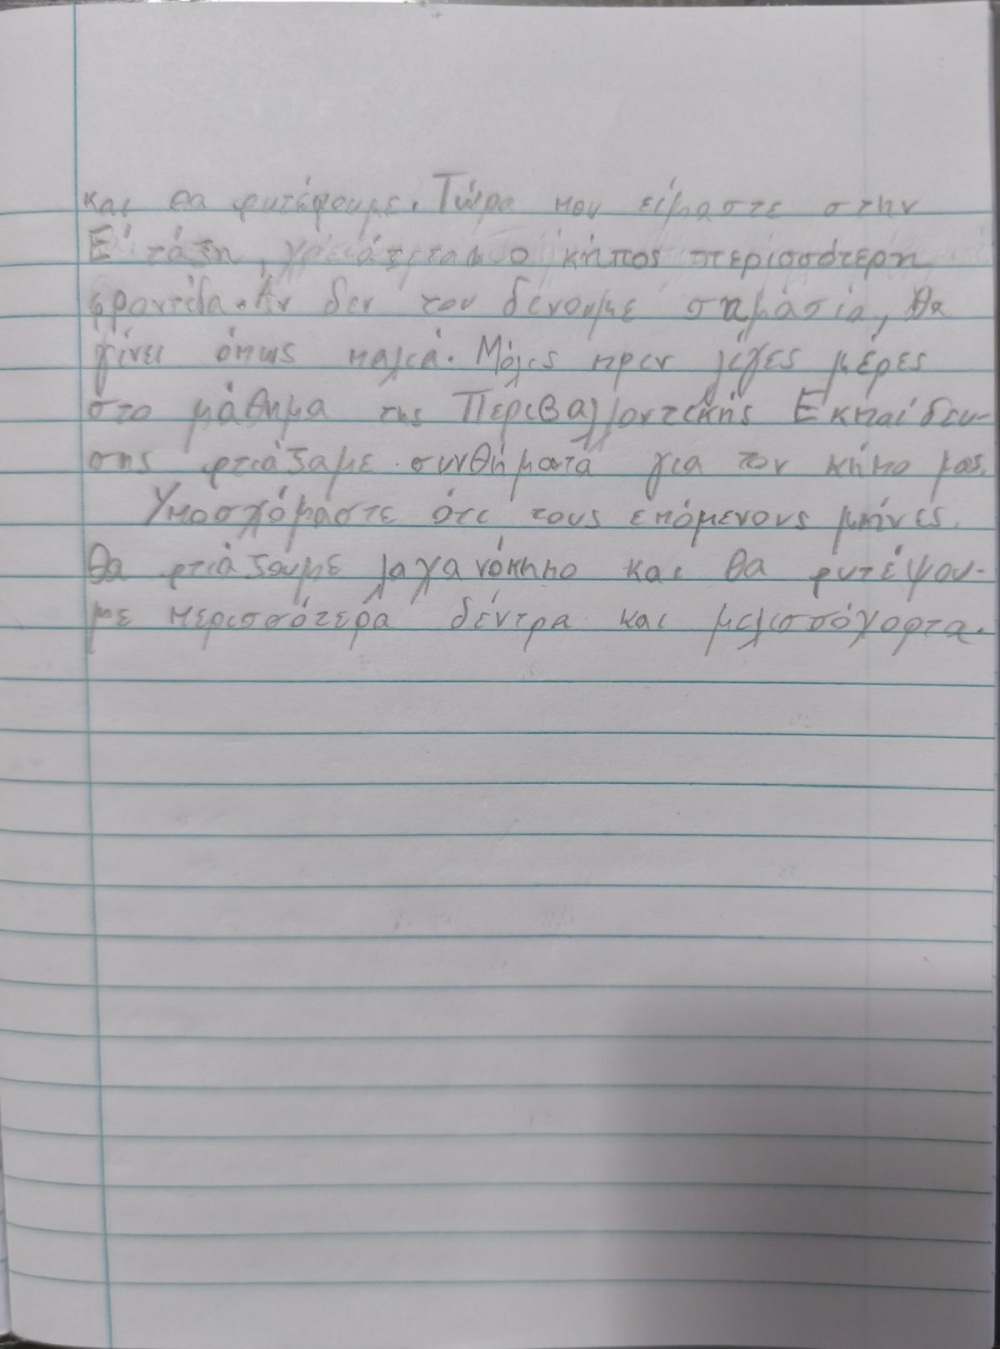 και θα φυτέψουμε. Τώρα που είμαστε στην
Ε' τάξη, χρειάζεται ο κήπος περισσότερη
φροντίδα. Αν δεν του δένουμε σημασία, θα
γίνει όπως παλιά. Μόλις πριν λίγες μέρες
στο μάθημα της Περιβαλλοντικής Εκπαίδευ-
σης φτιάξαμε συνθήματα για τον κήπο μας.
Υποσχόμαστε ότι τους επόμενους μήνες
θα φτιάξουμε λαχανόκηπο και θα φυτέψου-
με περισσότερα δέντρα και μελισσόχορτα.